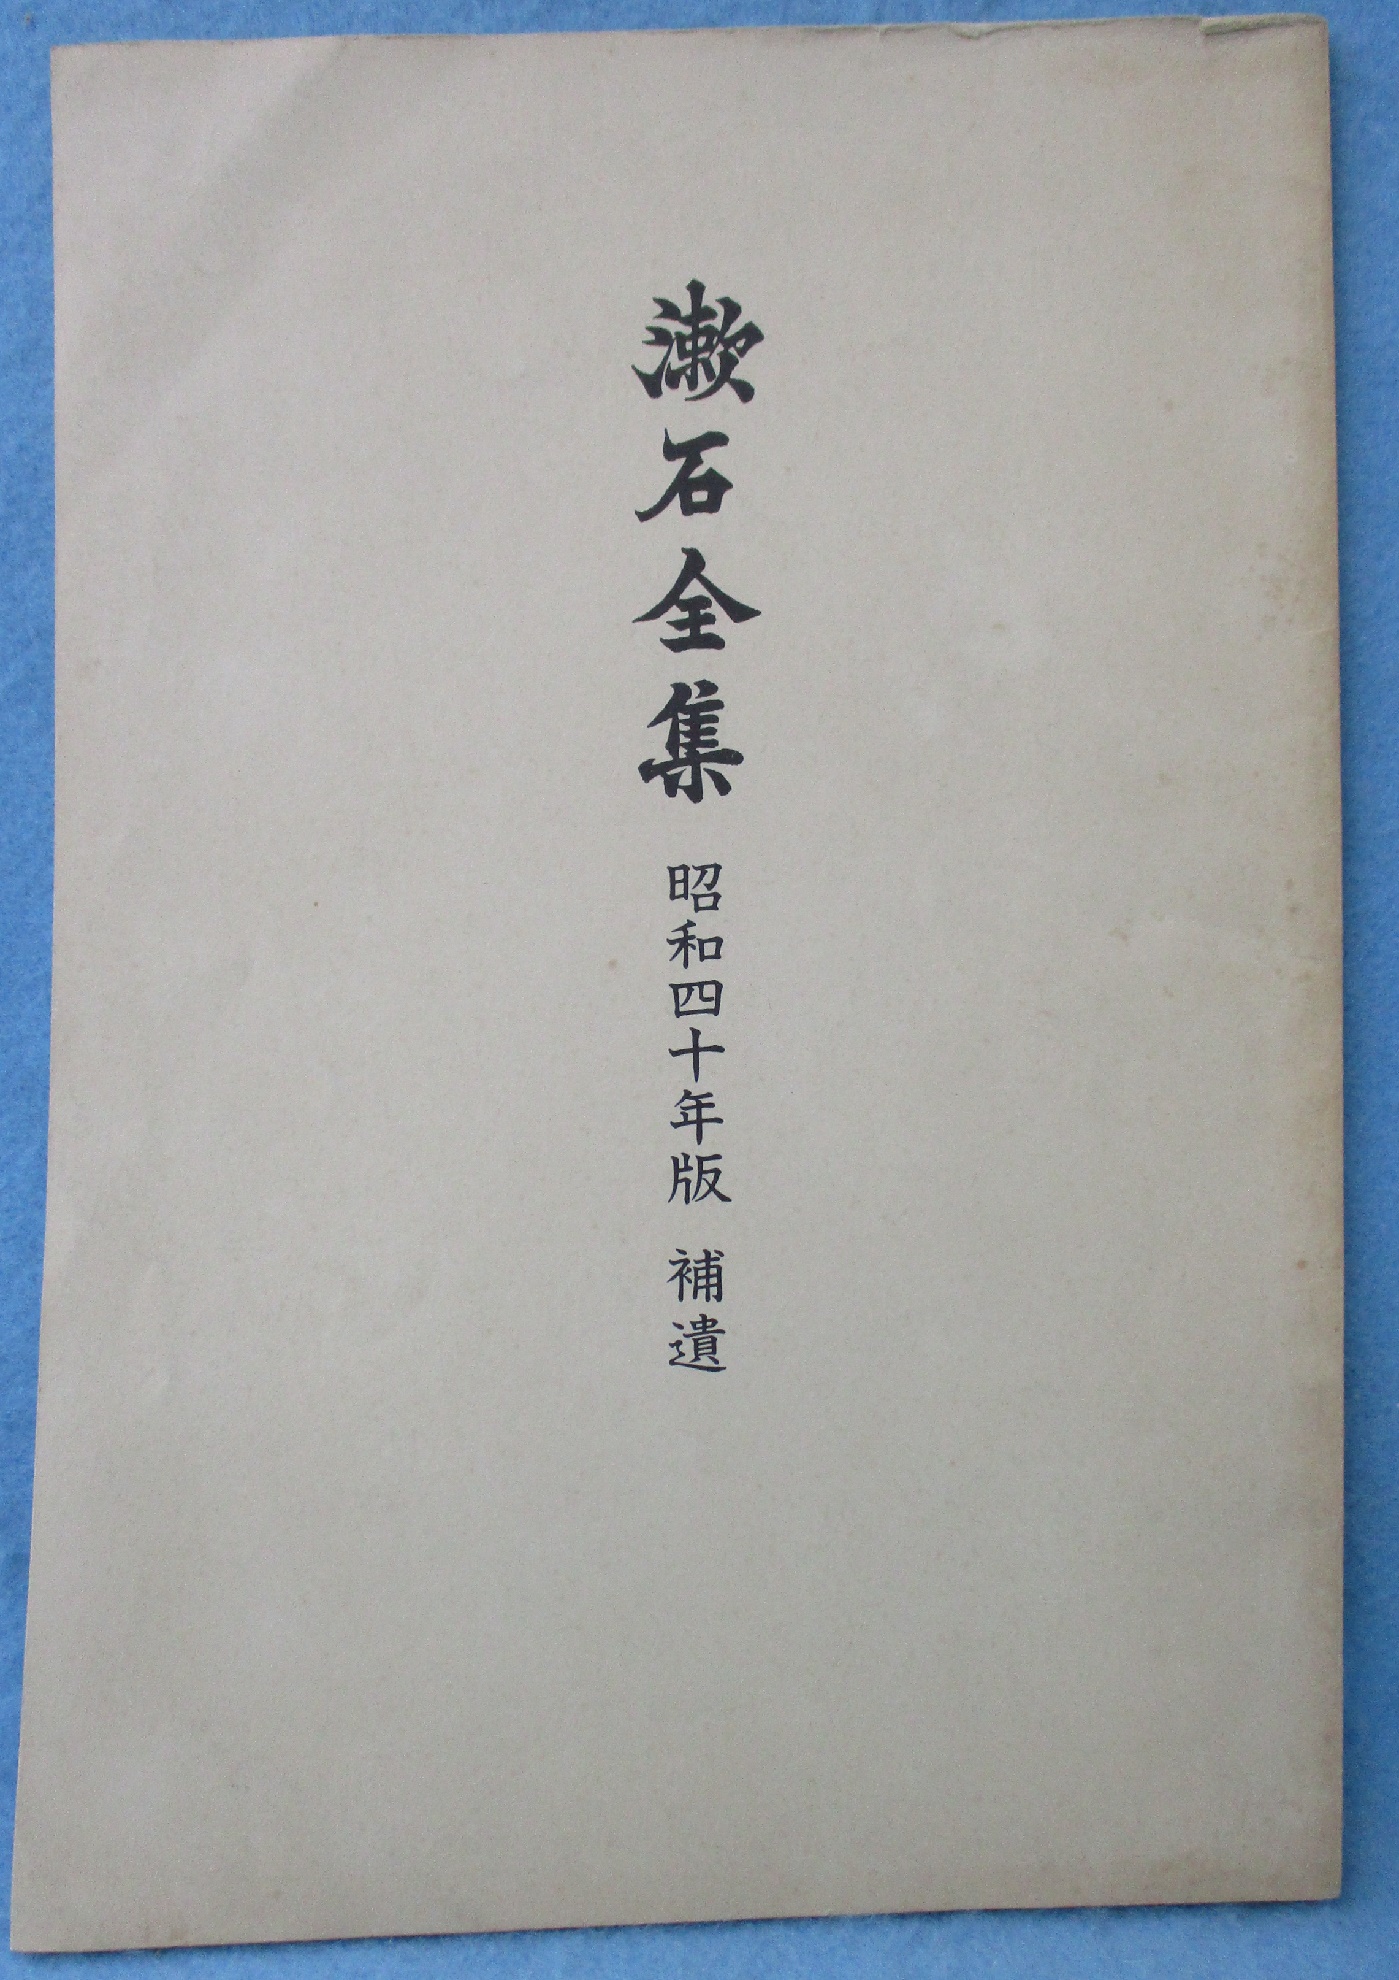 漱石全集 昭和四十年版 補遺